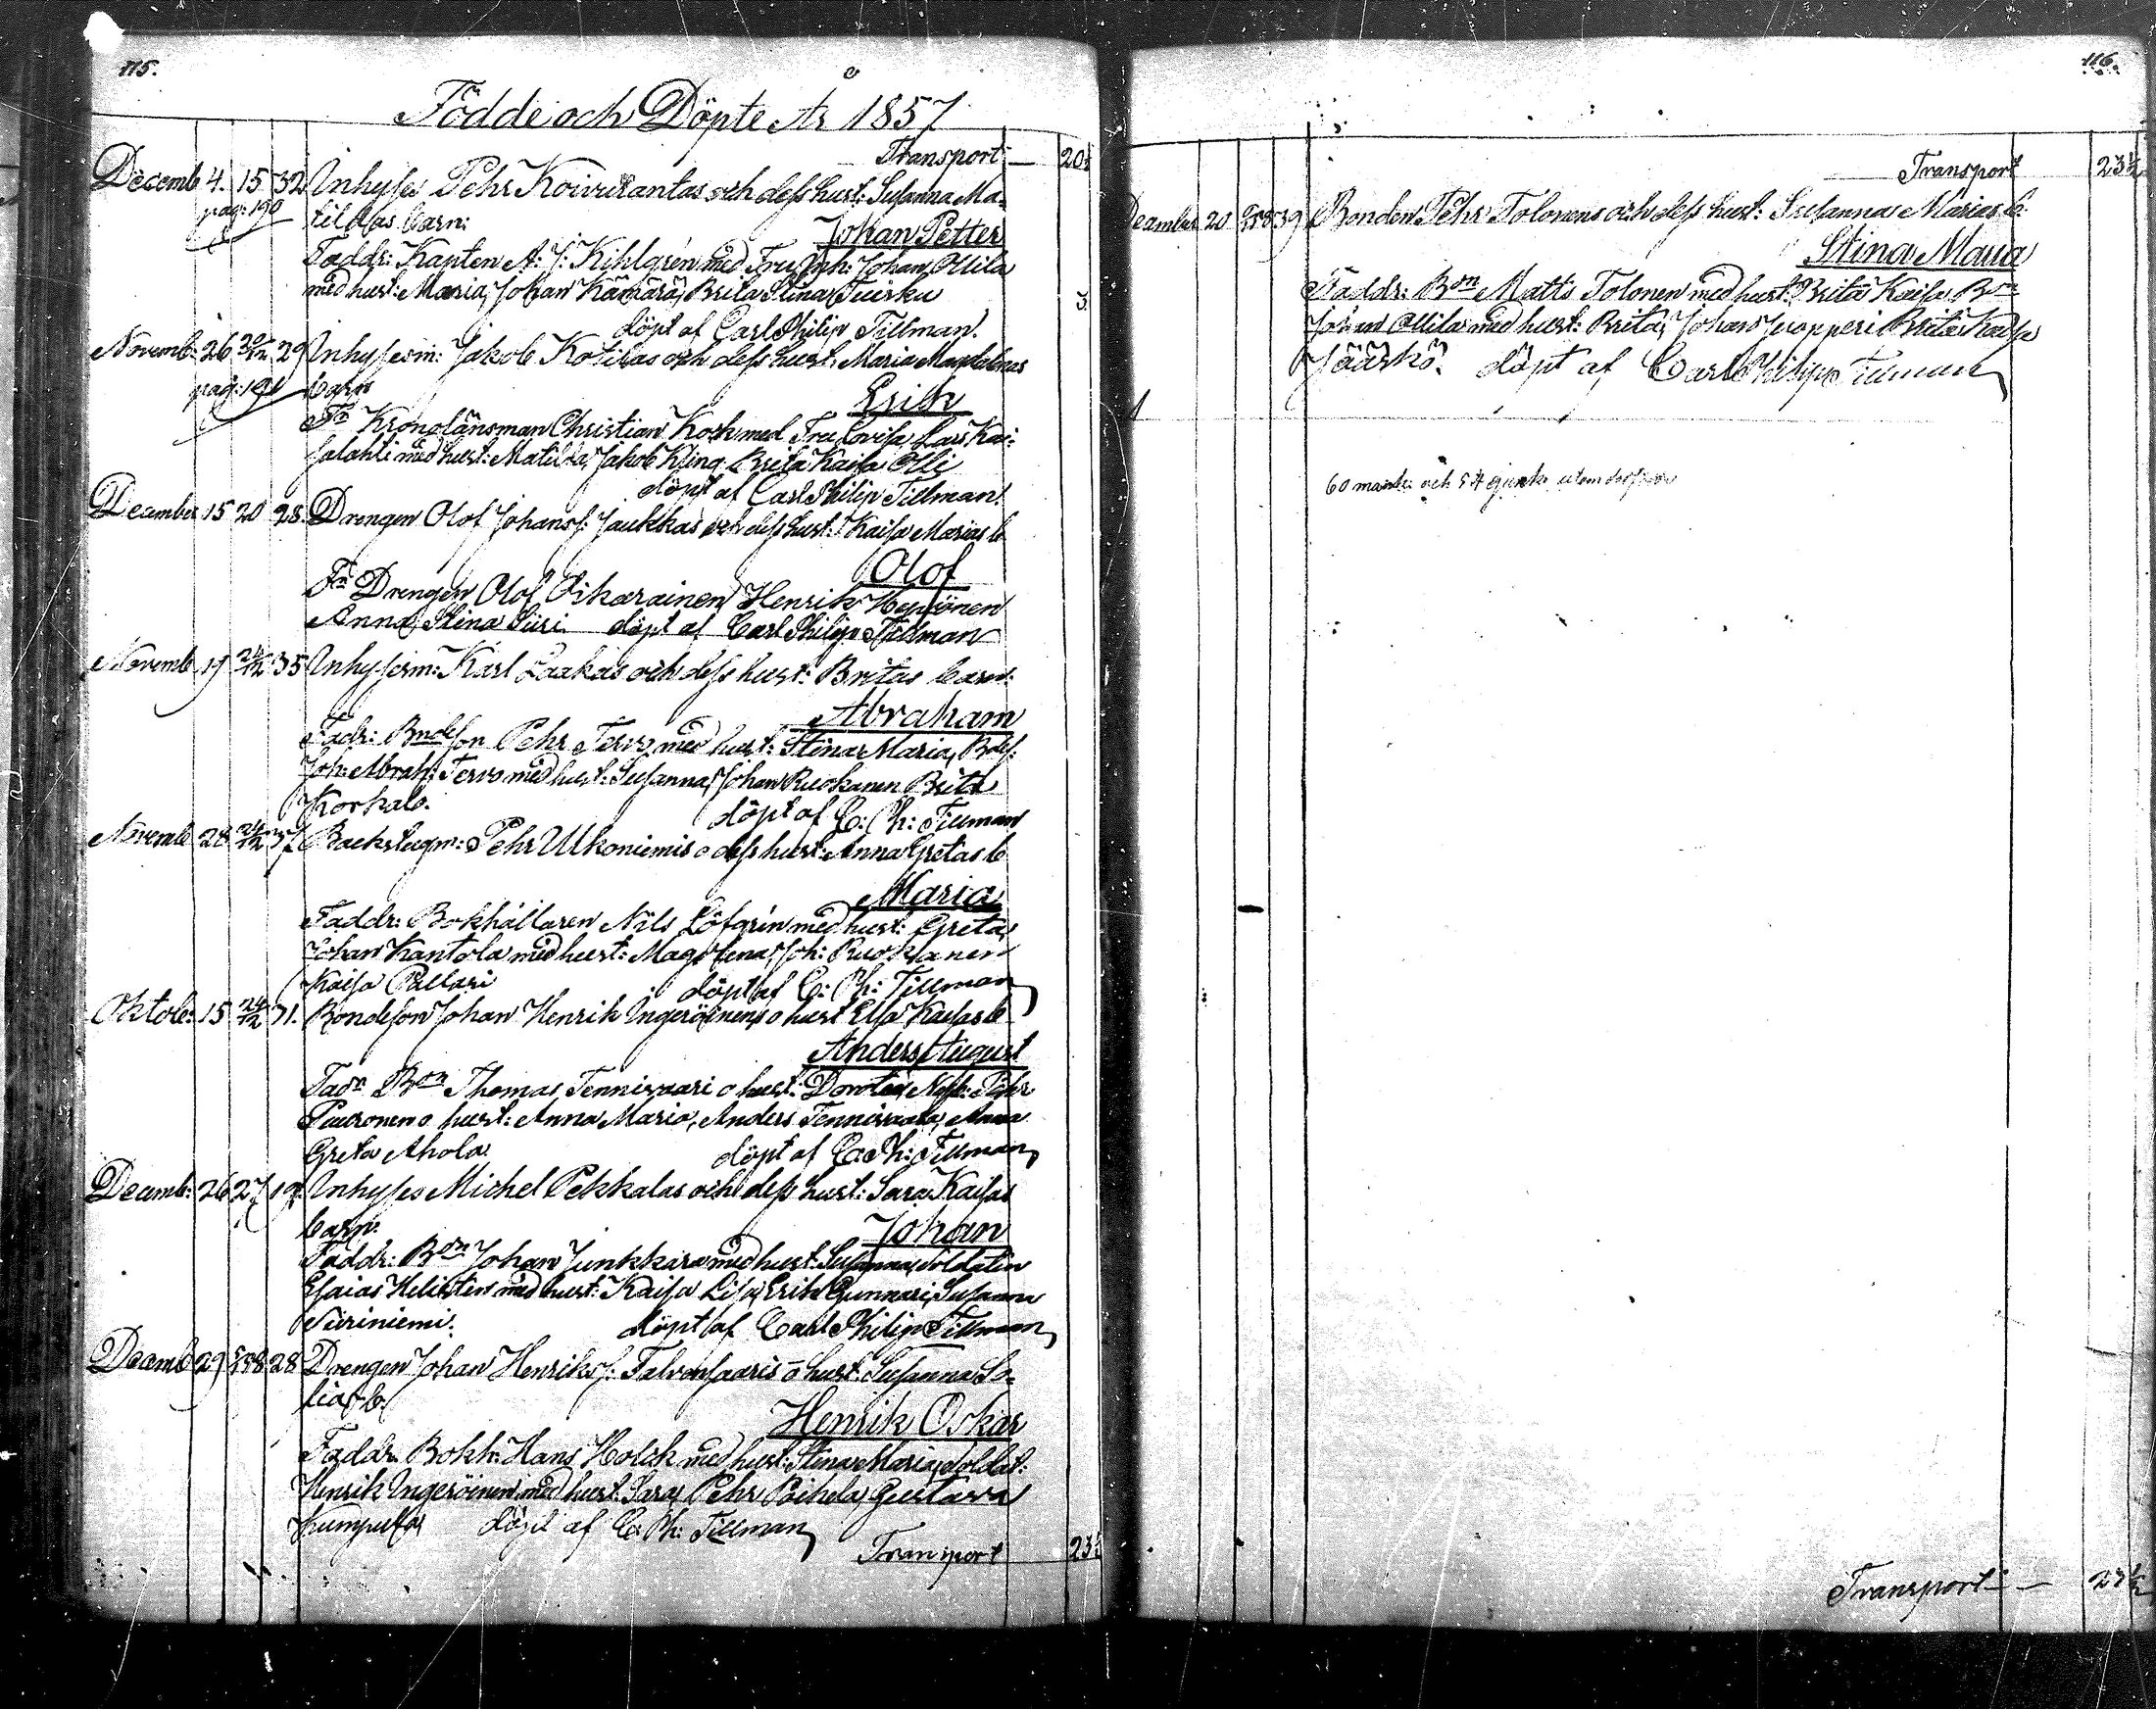 115.
Födde och Döpte År 1857
Transport — 20½
Decemb 4. 15 32 Inhyses Pehr Koivurantas och dess hust: Susanna Ma-
pag: 190 tildas barn:
Johan Petter
Faddr: Kapten A: J: Kihlgrén med Fru, Inh: Johan Ollila
med hust: Maria, Johan Kämärä, Brita Stina Tuisku 3
döpt af Carl Philip Tillman.
Novemb: 26 20/12 29 Inhysesm: Jakob Kotilas och dess hust: Maria Magdalenas
pag: 191 barn
Erik
Fr Kronolänsman Christian Kock med Fru Lovisa, Lars Kai-
salahti med hust: Matilda, Jakob Kling Brita Kaisa Olli
döpt af Carl Philip Tillman.
December 15 20 28. Drengen Olof Johanss: Jaukkas och dess hust: Kaisa Marias b
Olof
Fr Drengen Olof Oikarainen Henrik Heponen
Anna Stina Siiri döpt af Carl Philip Tillman
Novemb 19 24/12 35 Inhysesm: Karl Laakas och dess hust: Britas barn:
Abraham
Fadr: Bndeson Pehr Tervo med hust: Stina Maria, Bdes:
Joh: Abrah: Tervo med hust: Susanna, Johan Ruokanen Brita
Korkalo. döpt af C: Ph: Tillman
Novemb 28 24/12 37 Backstugm: Pehr Ulkoniemis o dess hust: Anna Gretas b
Maria
Faddr: Bokhållaren Nils Löfgrén med hust: Greta,
Johan Kantola med hust: Magdlena, Joh: Ruokanen
Kaisa Pallari döpt af C: Ph: Tillman
Oktob: 15 24/12 31. Bondeson Johan Henrik Ingeröinens o hust Elsa Kaisas b
Anders August
Fadr Bon Thomas Tennivaari o hust: Dorotea, Nyb: Pehr
Puuronen o hust: Anna Maria, Anders Tennivaara, Anna
Greta Ahola. döpt af C: Ph: Tillman
Decemb: 26 27 19. Inhyses Michel Pekkalas och dess hust: Sara Kaisas
barn. Johan
Faddr: Bon Johan Junkkara med hust: Susanna, Soldaten
Esaias Helisten med hust: Kaisa Lisa, Erik Gunnari, Susanna
Niriniemi. döpt af Carl Philip Tillman
Decemb 29 28 Drengen Johan Henrikss: Talvensaaris o hust: Susanna So-
fias b.
Henrik Oskar
Faddr. Bokh: Hans Holck med hust: Stina Maria, Soldat:
Henrik Ingeröinen med hust: Sara, Pehr Poikela, Gustava
Kumpula, döpt af C: Ph: Tillman
Transport 23½
116.
Transport 23½
December 20 39 Bonden Pehr Tolonens och dess hust: Susanna Marias b:
Stina Maria
Faddr: Bon Matts Tolonen med hust: Brita Kaisa Bon
Johan Ollila med hust: Brita, Johan Brita Kaisa
Jääskö. döpt af Carl Philip Tillman
60 och 54
Transport — 23½